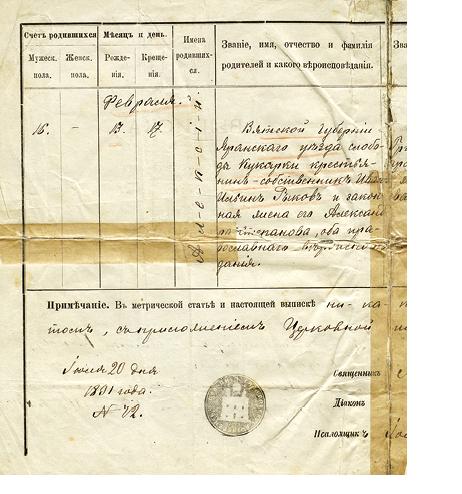 Счетъ родившихся
Мѣсяцъ и день.
Имена родивших-ся.
Званіе, имя, отчество и фамилія
родителей и какого вѣроисповѣданія.
Зва
Мужеск. пола.
Женск. пола.
Рожде-нія.
Креще-нія.
Февраля.
16.
–
13.
17.
Алексій
Вятской губерніи
Яранскаго уѣзда слобо-
ды Кукарки крестья-
нинъ-собственникъ Иван
Ильинъ Рыковъ и закон-
ная жена его Алексан
Степанова, оба пра-
вославнаго
данія.
Примѣчаніе. Въ метрической статьѣ и настоящей выпискѣ ни-ка
съ приложеніемъ Церковной
Іюля 20 дня
1891 года.
№ 72.
Священникъ
Діаконъ
Псаломщикъ